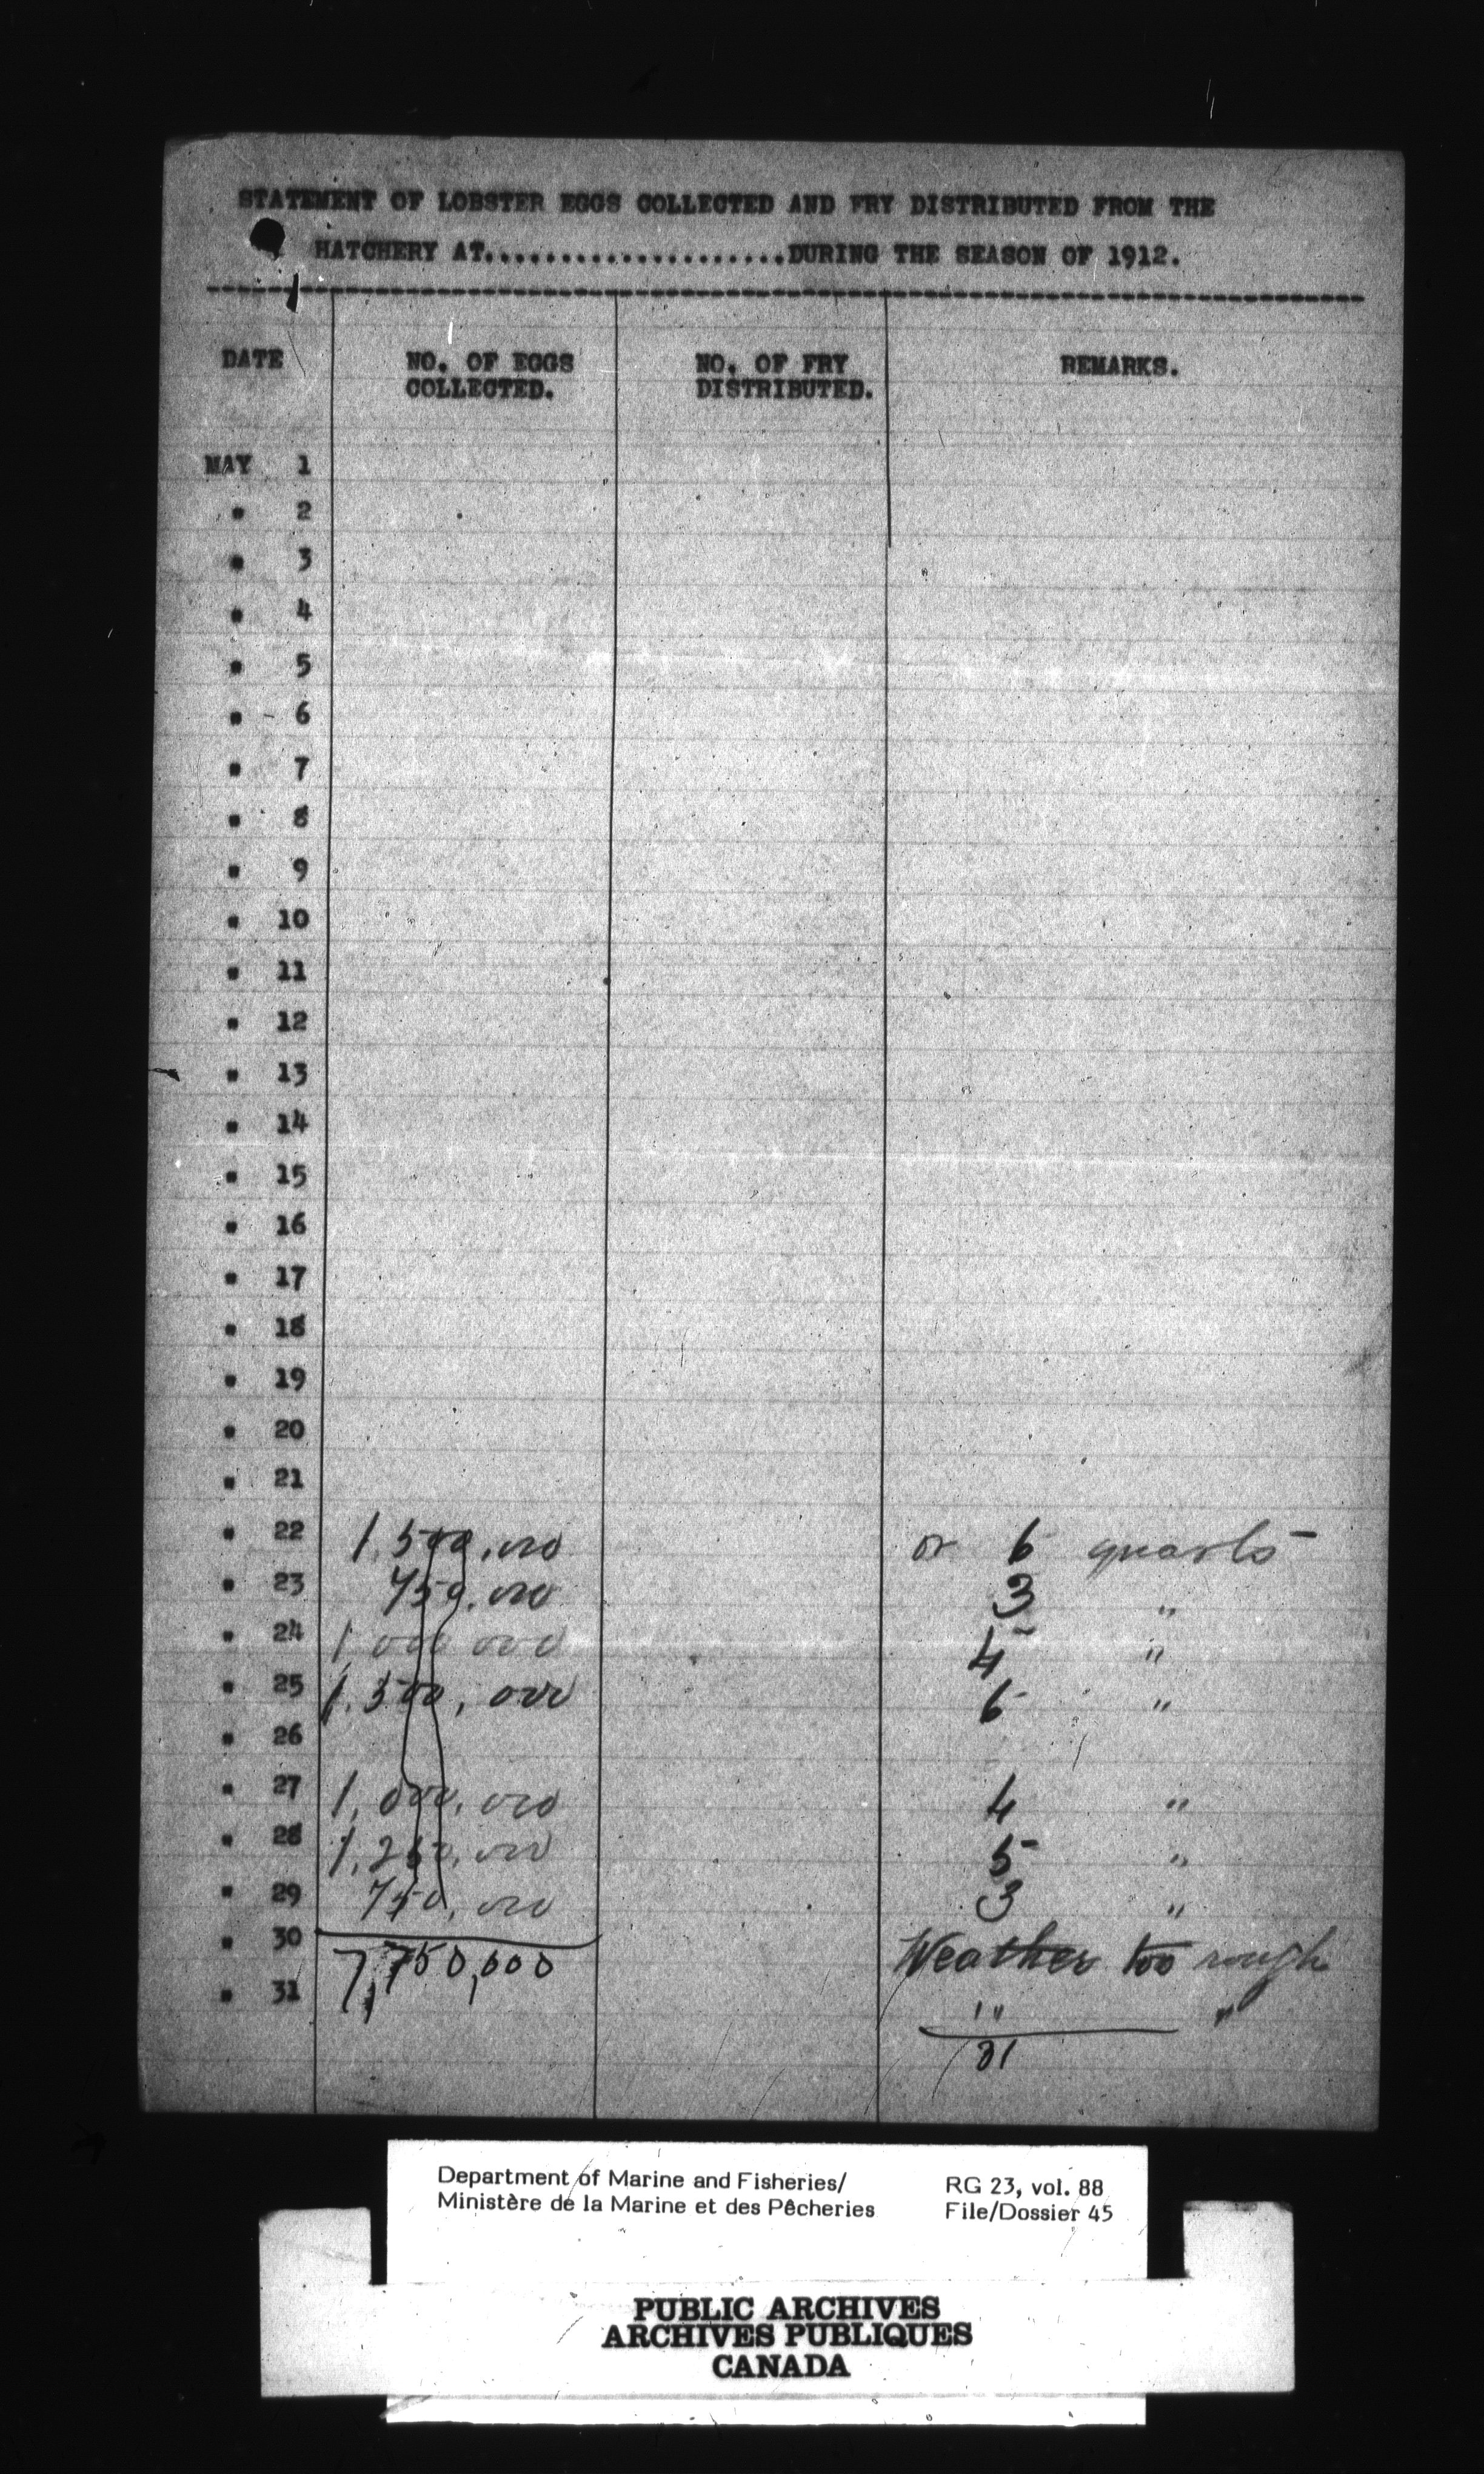 STATEMENT OF LOBSTER EGGS COLLECTED AND FRY DISTRIBUTED FROM THE
HATCHERY AT....................DURING THE SEASON OF 1912.
DATE NO. OF EGGS COLLECTED. NO. OF FRY DISTRIBUTED. REMARKS.
MAY 1
" 2
" 3
" 4
" 5
" 6
" 7
" 8
" 9
" 10
" 11
" 12
" 13
" 14
" 15
" 16
" 17
" 18
" 19
" 20
" 21
" 22 1,500,000 or 6 quarts
" 23 750,000 3 "
" 24 1,000,000 4 "
" 25 1,500,000 6 "
" 26
" 27 1,000,000 4 "
" 28 1,250,000 5 "
" 29 750,000 3 "
" 30 Weather too rough
7,750,000
" 31 " "
31
Department of Marine and Fisheries/ RG 23, vol. 88
Ministère de la Marine et des Pêcheries File/Dossier 45
PUBLIC ARCHIVES
ARCHIVES PUBLIQUES
CANADA